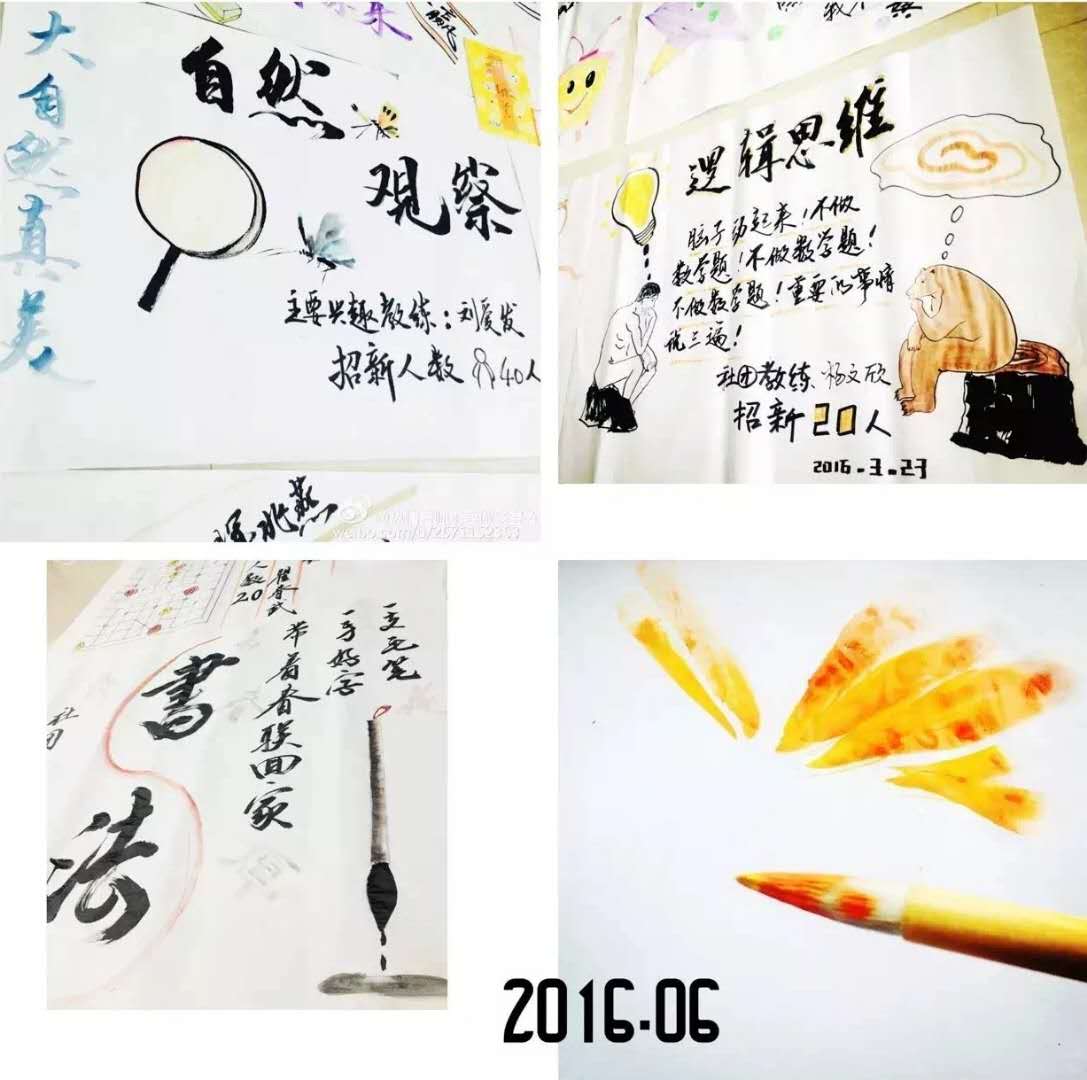 大自然真美
自然
观察
主要兴趣教练：刘爱发
招新人数 40人
逻辑思维
脑子动起来！不做
数学题！不做数学题！
不做数学题！重要的事情
说三遍！
社团教练 杨文欣
招新20人
2016.3.23
人数20
书法
書法
一支毛笔
一手好字
带着春联回家
社团
2016.06